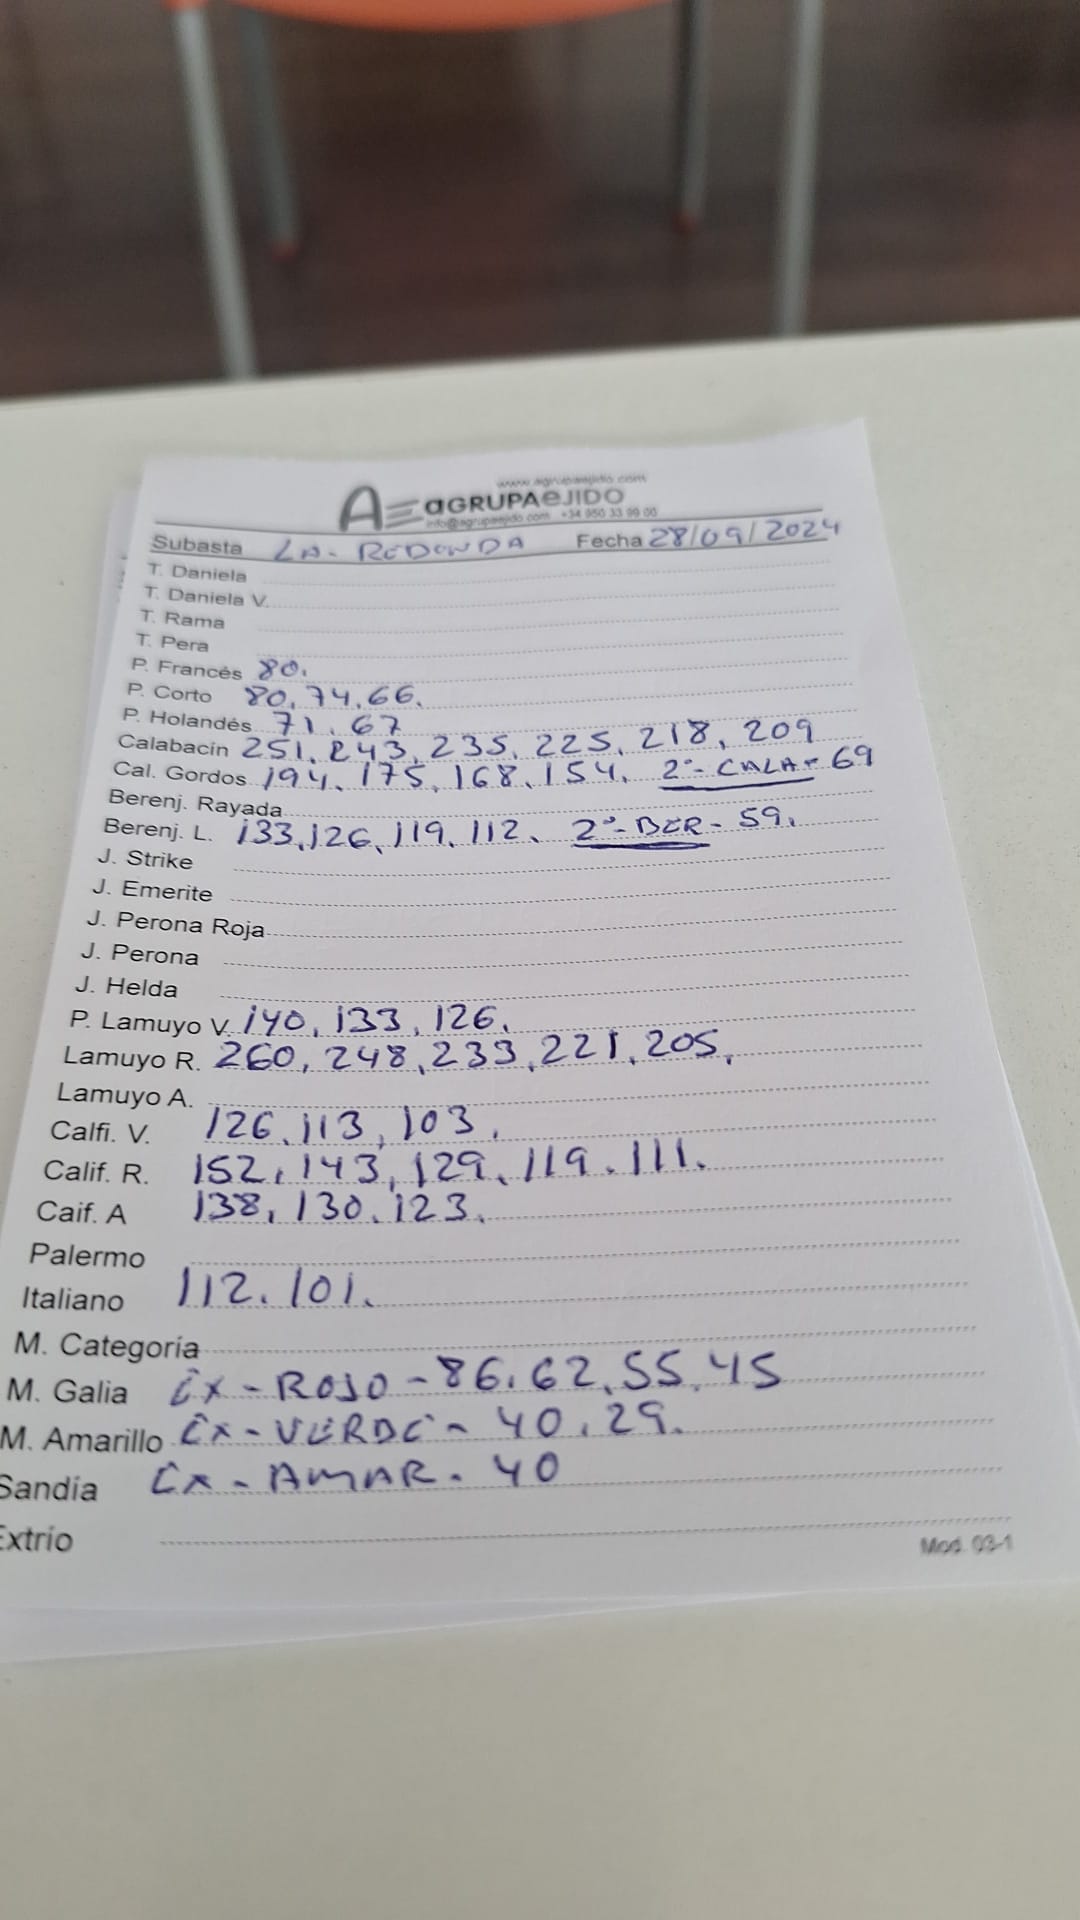 www.agrupaejido.com
AGRUPAEJIDO
info@agrupaejido.com +34 950 33 99 00
Subasta LA-REDONDA Fecha 28/09/2024
T. Daniela
T. Daniela V.
T. Rama
T. Pera
P. Francés 80.
P. Corto 80, 74, 66.
P. Holandés 71, 67
Calabacín 251, 243, 235, 225, 218, 209
Cal. Gordos 194, 175, 168, 154. 2º- CALA- 69
Berenj. Rayada
Berenj. L. 133, 126, 119, 112. 2º- BER- 59.
J. Strike
J. Emerite
J. Perona Roja
J. Perona
J. Helda
P. Lamuyo V. 140, 133, 126.
Lamuyo R. 260, 248, 233, 221, 205.
Lamuyo A.
Calfi. V. 126, 113, 103.
Calif. R. 152, 143, 129, 119, 111.
Caif. A 138, 130, 123.
Palermo
Italiano 112. 101.
M. Categoría
M. Galia Ex-ROJO-86, 62, 55, 45
M. Amarillo Ex-VERDE- 40, 29.
Sandia Ex-AMAR. 40
Extrio
Mod. 03-1